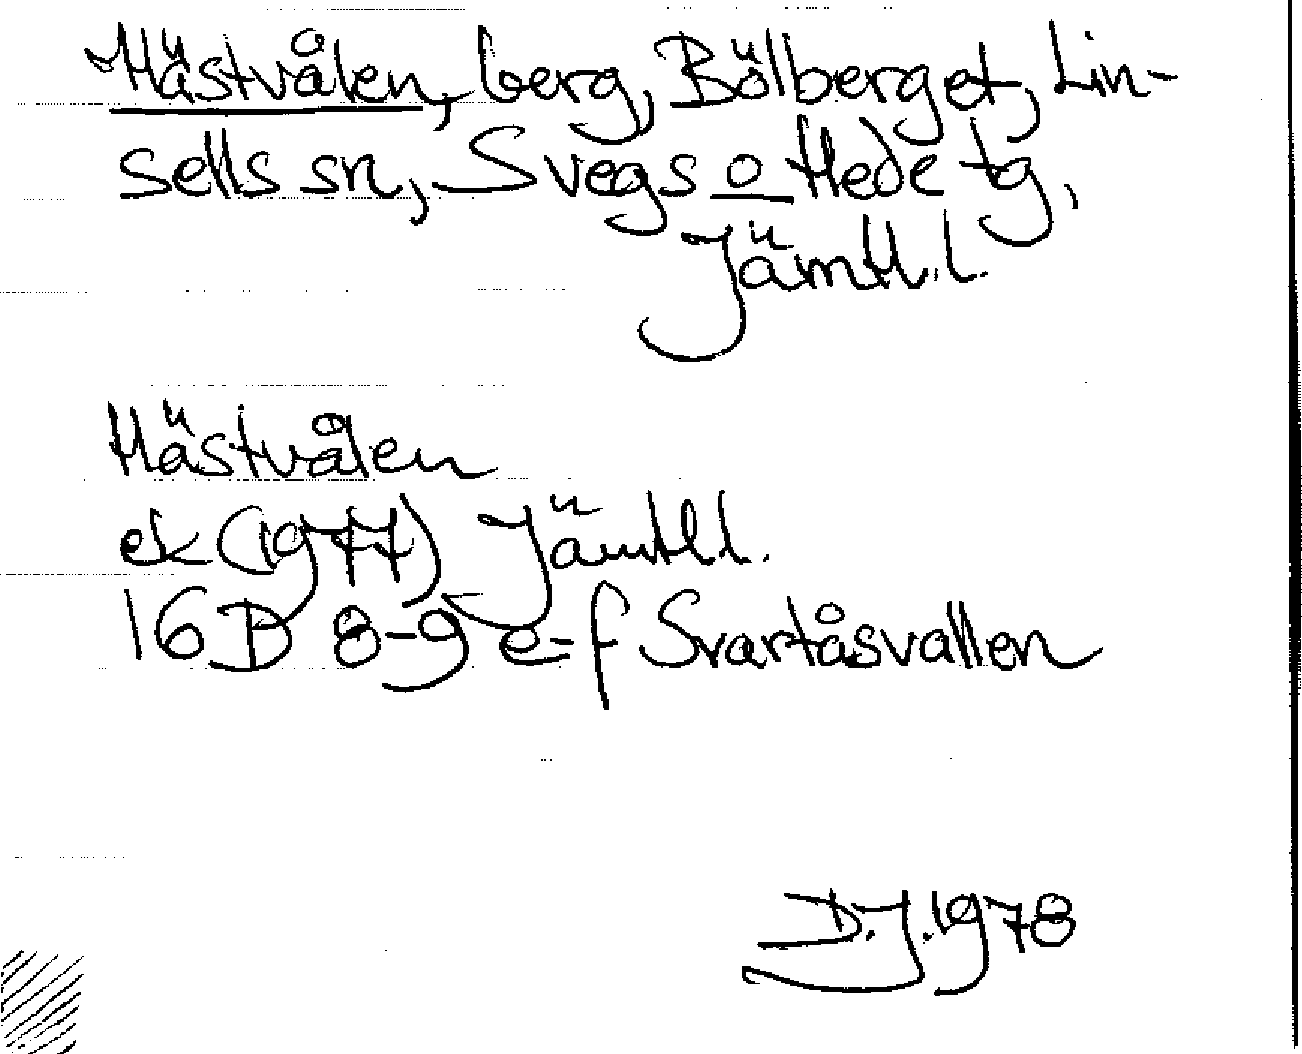 Hästvålen, berg, Bölberget, Lin-
sells sn, Svegs o Hede tg,
Jämtl.l.
Hästvålen
ek (1977) Jämtl l.
16 D 8-9 e-f Svartåsvallen
D.J.1978